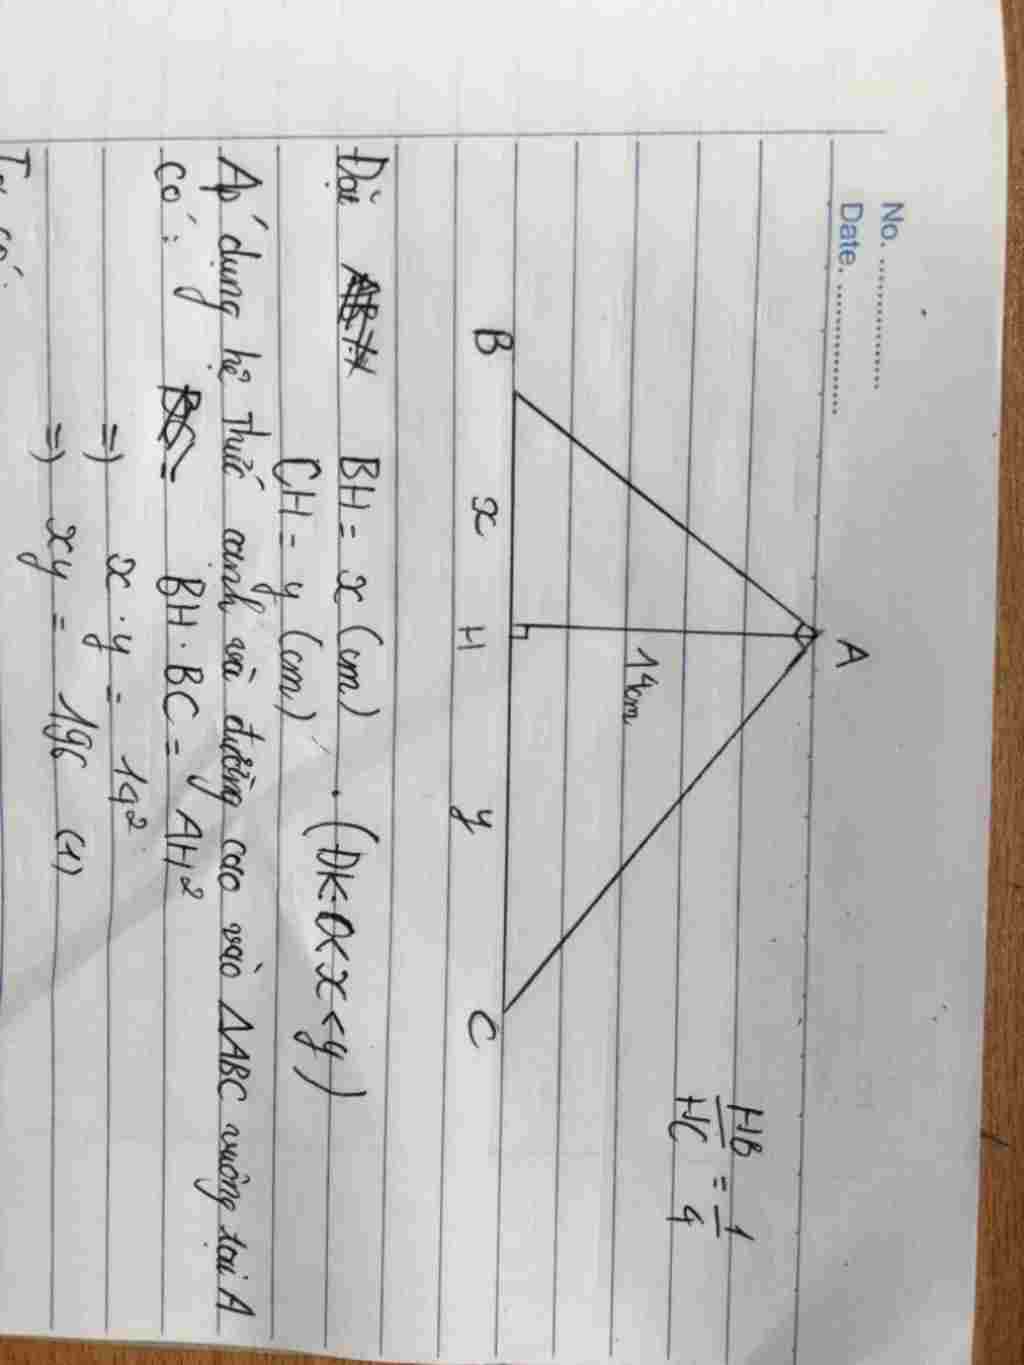 No. ....................
Date. ....................
A
HB/HC = 1/4
14cm
B x H y C
Đặt BH = x (cm) . (ĐK: 0 < x < y)
CH = y (cm)
Áp dụng hệ thức cạnh và đường cao vào ΔABC vuông tại A
có: BH . BC = AH²
=) x . y = 14²
=) xy = 196 (1)
Ta có: